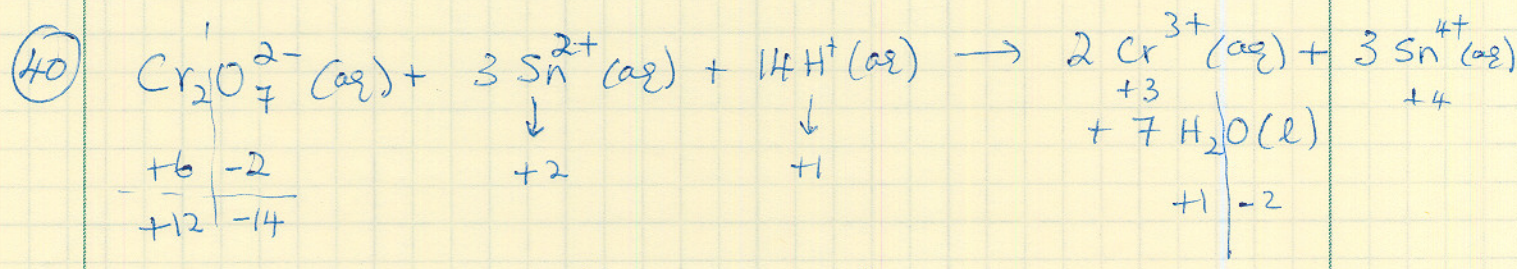 40 Cr₂O₇²⁻ (aq) + 3 Sn²⁺ (aq) + 14 H⁺ (aq) → 2 Cr³⁺ (aq) + 3 Sn⁴⁺ (aq)
↓ ↓ +3 +4
+ 7 H₂O (l)
+6 -2 +2 +1
+1 -2
+12 -14